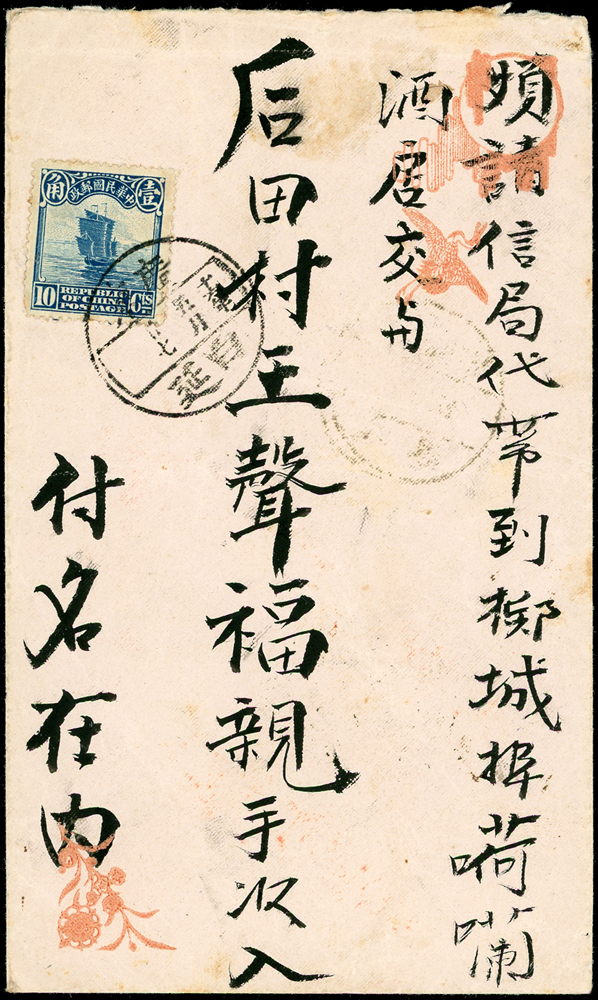 煩請信局代帶到榔城埠嗬囒
酒居交与
后田村王聲福親手收入
付名在内
中華民國郵政
壹角
REPUBLIC
OF CHINA
10 POSTAGE Cts